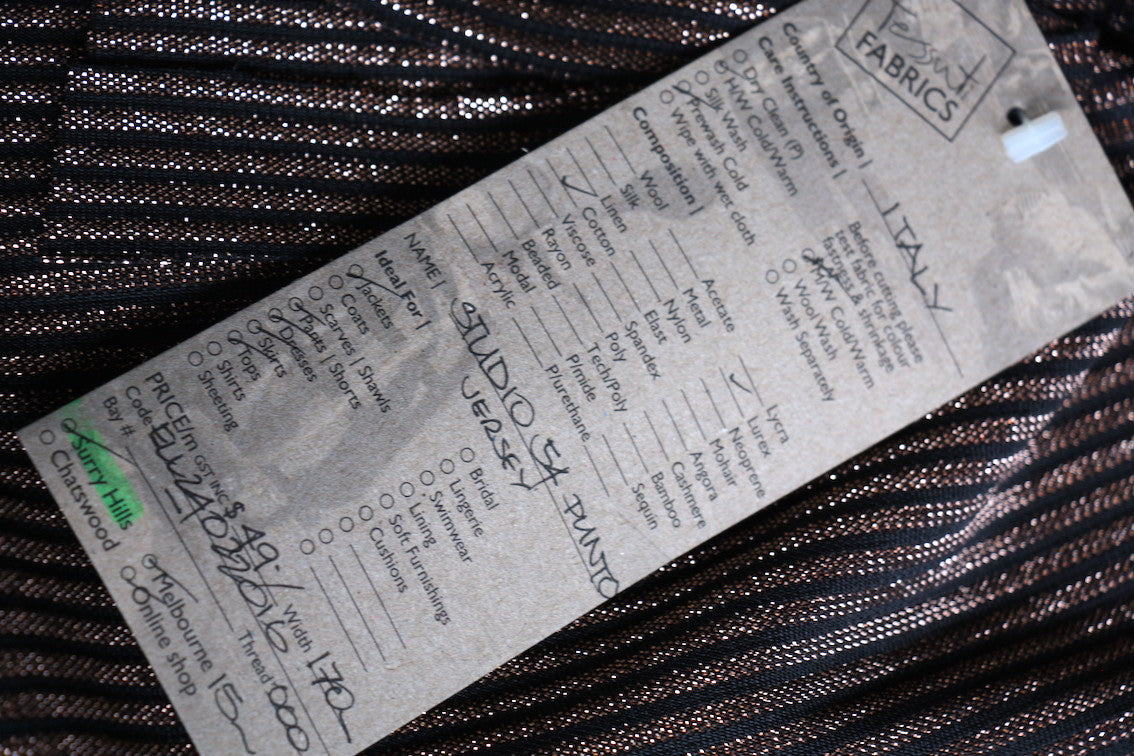 Tessuti
FABRICS
Country of Origin | ITALY
Care Instructions |
Before cutting please
test fabric for colour
fastness & shrinkage.
Dry Clean (P)
H/W Cold/Warm
Silk Wash
Prewash Cold
Wipe with wet cloth
H/W Cold/Warm
Wool Wash
Wash Separately
Composition |
Wool
Silk
Linen
Cotton
Viscose
Rayon
Beaded
Modal
Acrylic
Acetate
Metal
Nylon
Elast
Spandex
Poly
Tech/Poly
P/mide
P/urethane
Lycra
Lurex
Neoprene
Mohair
Angora
Cashmere
Bamboo
Sequin
NAME | STUDIO 54 PUNTO
JERSEY
Ideal For |
Jackets
Coats
Scarves | Shawls
Pants | Shorts
Dresses
Skirts
Tops
Shirts
Sheeting
Bridal
Lingerie
Swimwear
Lining
Soft Furnishings
Cushions
PRICE/m GST INC $ 49.- Width 1.70
Code Thread 000
Bay #
Surry Hills
Chatswood
Melbourne 15
Online shop